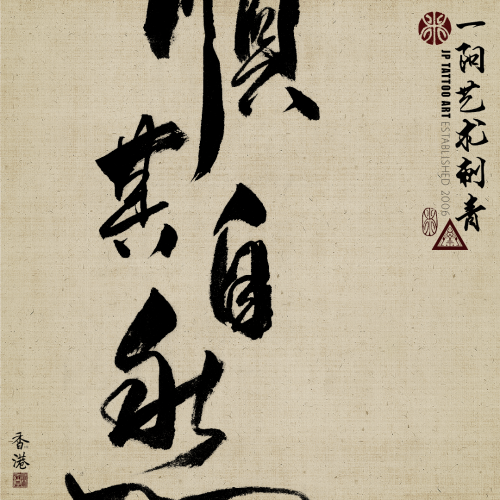 順其自然
一阳艺术刺青
JP TATTOO ART ESTABLISHED 2006
香港